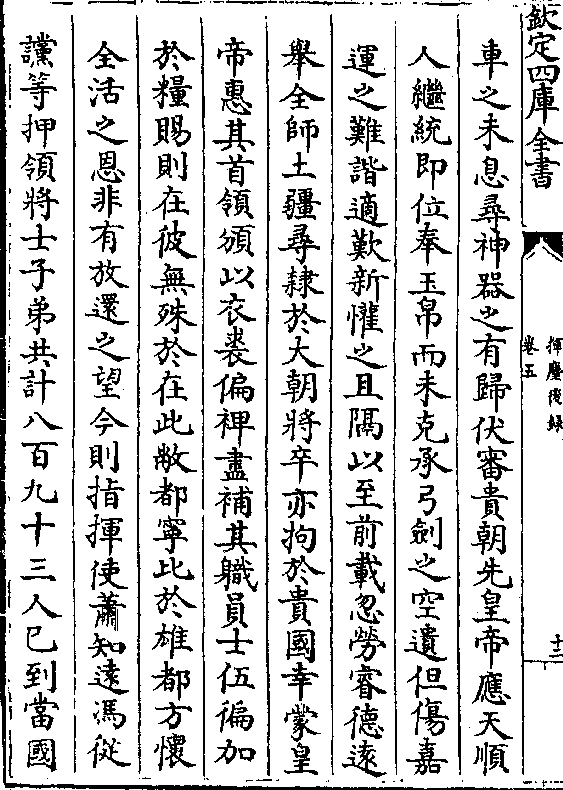 欽定四庫全書
揮麈後錄
卷五
十二
車之未息尋神器之有歸伏審貴朝先皇帝應天順
人繼統即位奉玉帛而未克承弓劍之空遺但傷嘉
運之難諧適歎新懽之且隔以至前載忽勞睿德遠
舉全師土疆尋隸於大朝將卒亦拘於貴國幸蒙皇
帝惠其首領頒以衣裘偏裨盡補其職員士伍徧加
於糧賜則在彼無殊於在此敝都寧比於雄都方懷
全活之恩非有放還之望今則指揮使蕭知遠馮從
讜等押領將士子弟共計八百九十三人已到當國